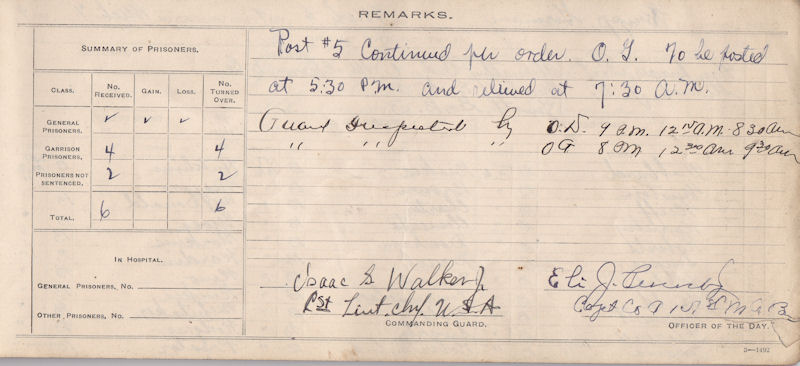 REMARKS.
SUMMARY OF PRISONERS.
CLASS. No. RECEIVED. GAIN. LOSS. No. TURNED OVER.
GENERAL PRISONERS. ✓ ✓ ✓
GARRISON PRISONERS. 4 4
PRISONERS NOT SENTENCED. 2 2
TOTAL. 6 6
IN HOSPITAL.
GENERAL PRISONERS, No.
OTHER PRISONERS, No.
Post #5 Continued per order. O.G. To be posted
at 5:30 P.M. and relieved at 7:30 A.M.
Guard Inspected by O.D. 9 P.M. 12 A.M. 8 30 AM
" " " OG 8 PM 12 30 AM 9 30 AM
Isaac G Walker Jr
1st Lieut. U.S.A
COMMANDING GUARD.
Eli J.
Capt Co
OFFICER OF THE DAY.
3—1492